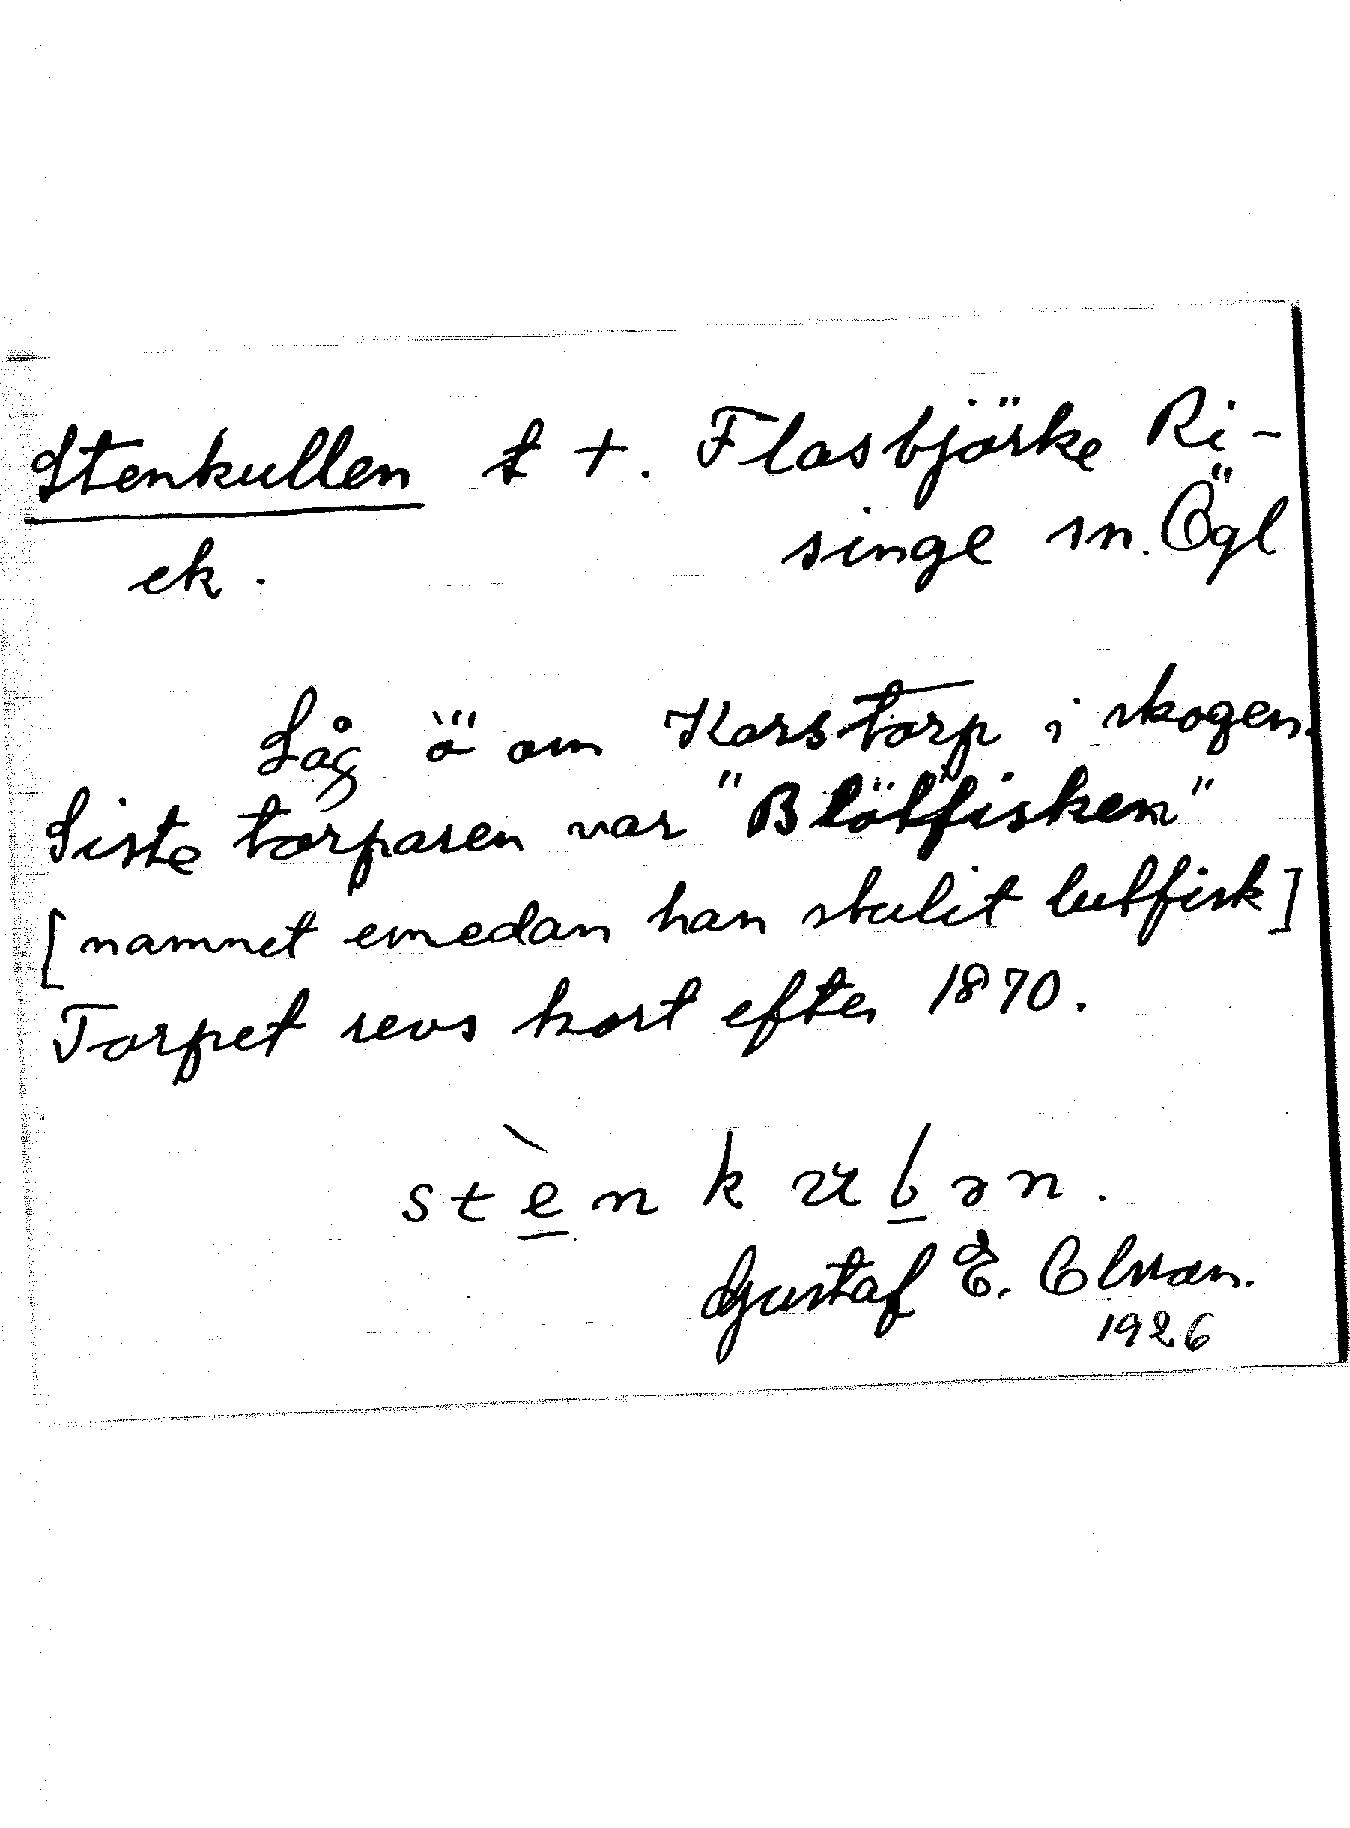 Stenkullen t +. Flasbjörke Ri-
ek. singe sn. Ögl
Låg ö om Korstorp i skogen.
Siste torparen var "Blötfisken"
[namnet emedan han stulit lutfisk]
Torpet revs kort efter 1870.
stènkulən.
Gustaf E. Olson.
1926